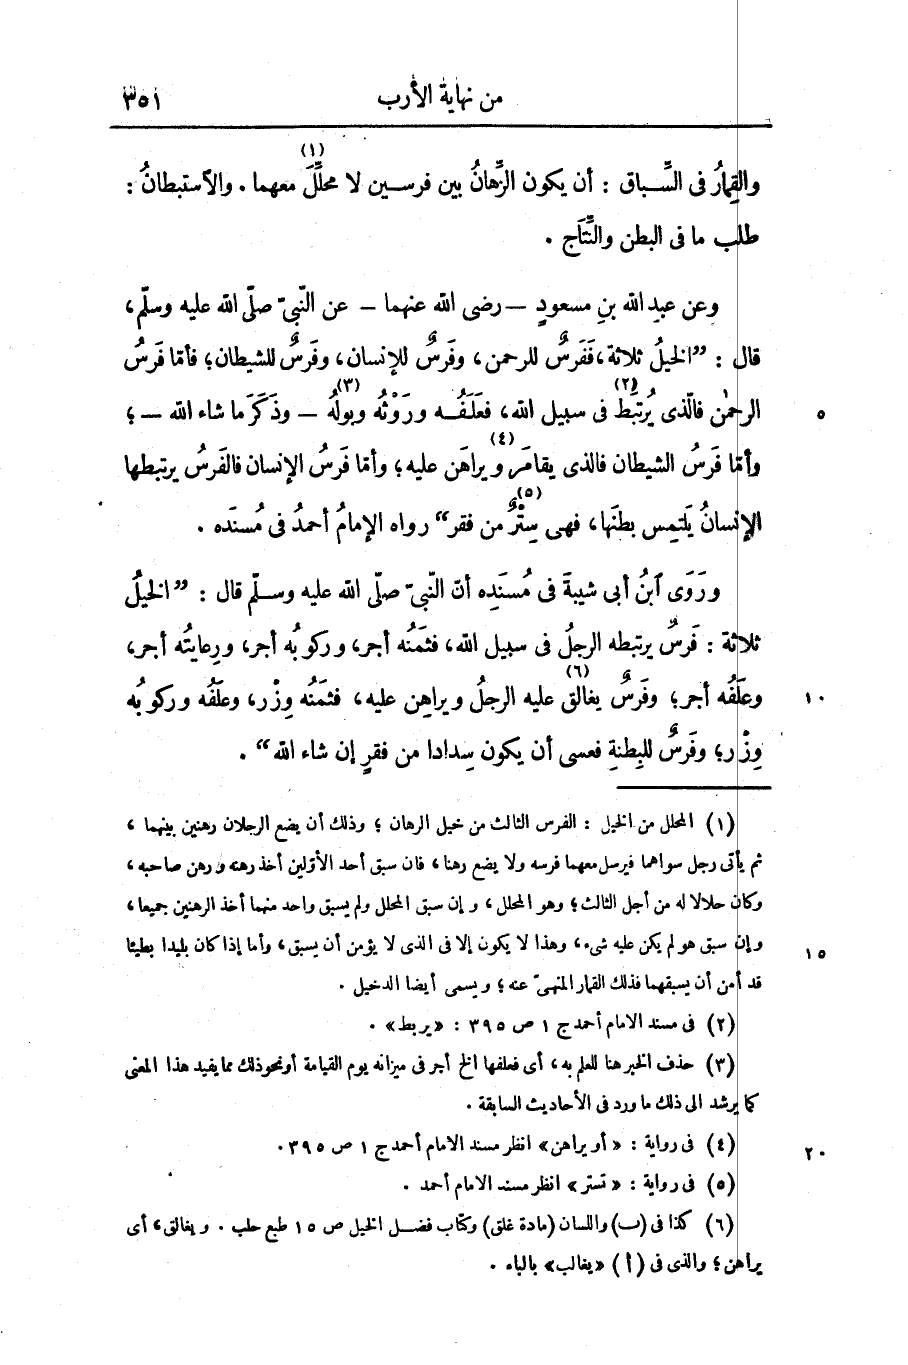 من نهاية الأرب ٣٥١
والقِمارُ فى السِّباق : أن يكون الرِّهانُ بين فرسين لا محلِّلَ (١) معهما . والاستبطانُ :
طلب ما فى البطن والنِّتَاج .
وعن عبد الله بنِ مسعودٍ — رضى الله عنهما — عن النّبىّ صلّى الله عليه وسلّم،
قال : ”الخيلُ ثلاثة، فَفَرسٌ للرحمن، وفَرسٌ للإنسان، وفَرسٌ للشيطان؛ فأمّا فَرسُ
الرحمٰن فالّذى يُرتَبَط (٢) فى سبيل الله، فعَلَفُه ورَوْثُه وبولُه (٣) — وذَكَرَ ما شاء الله — ؛ ٥
وأمّا فَرسُ الشيطان فالذى يقامَر ويراهَن (٤) عليه؛ وأمّا فَرسُ الإنسان فالفَرسُ يرتبطها
الإنسانُ يَلتمِس بطنَها، فهى سِتْرٌ (٥) من فقر“ رواه الإمامُ أحمدُ فى مُسنَده .
ورَوَى ابنُ أبى شيبةَ فى مُسنَدِه أنّ النّبىّ صلّى الله عليه وسلّم قال : ”الخيلُ
ثلاثة : فَرسٌ يرتبطه الرجلُ فى سبيل الله، فثمَنُه أجر، وركوبُه أجر، ورِعايتُه أجر،
وعلَفُه أجر؛ وفَرسٌ يغالق (٦) عليه الرجلُ ويراهِن عليه، فثمَنُه وِزْر، وعلَفُه وركوبُه ١٠
وِزْر؛ وفَرسٌ للبِطنةِ فعسى أن يكون سِدادا من فقرٍ إن شاء الله“ .
(١) المحلل من الخيل : الفرس الثالث من خيل الرهان ؛ وذلك أن يضع الرجلان رهنين بينهما ،
ثم يأتى رجل سواهما فيرسل معهما فرسه ولا يضع رهنا ، فان سبق أحد الأوّلين أخذ رهنه ورهن صاحبه ،
وكان حلالا له من أجل الثالث ؛ وهو المحلل ، وإن سبق المحلل ولم يسبق واحد منهما أخذ الرهنين جميعا ،
وإن سبق هو لم يكن عليه شىء ، وهذا لا يكون إلا فى الذى لا يؤمن أن يسبق ، وأما إذا كان بليدا بطيئا ١٥
قد أمن أن يسبقهما فذلك القمار المنهىّ عنه ؛ ويسمى أيضا الدخيل .
(٢) فى مسند الامام أحمد ج ١ ص ٣٩٥ : «يربط» .
(٣) حذف الخبر هنا للعلم به ، أى فعلفها الخ أجر فى ميزانه يوم القيامة أو نحو ذلك مما يفيد هذا المعنى
كما يرشد الى ذلك ما ورد فى الأحاديث السابقة .
(٤) فى رواية : «أو يراهن» انظر مسند الامام أحمد ج ١ ص ٣٩٥ . ٢٠
(٥) فى رواية : «تستر» انظر مسند الامام أحمد .
(٦) كذا فى (ب) واللسان (مادة غلق) وكتاب فضل الخيل ص ١٥ طبع حلب . ويغالق ، أى
يراهن ؛ والذى فى (أ) «يغالب» بالباء .